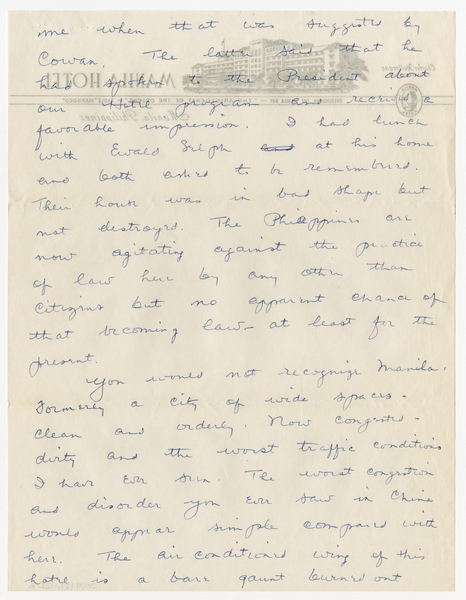 me when that was suggested by
Cowan. The latter said that he
had spoken to the President about
our little program and received a
favorable impression. I had lunch
with Ewald Selph at his home
and both asked to be remembered.
Their house was in bad shape but
not destroyed. The Philippines are
now agitating against the practice
of law here by any other than
citizens but no apparent chance of
that becoming law - at least for the
present.
You would not recognize Manila.
Formerly a city of wide spaces -
clean and orderly. Now congested -
dirty and the worst traffic conditions
I have ever seen. The worst congestion
and disorder you ever saw in China
would appear simple compared with
here. The air conditioned wing of this
hotel is a bare gaunt burned out
MANILA HOTEL
Manila Philippines